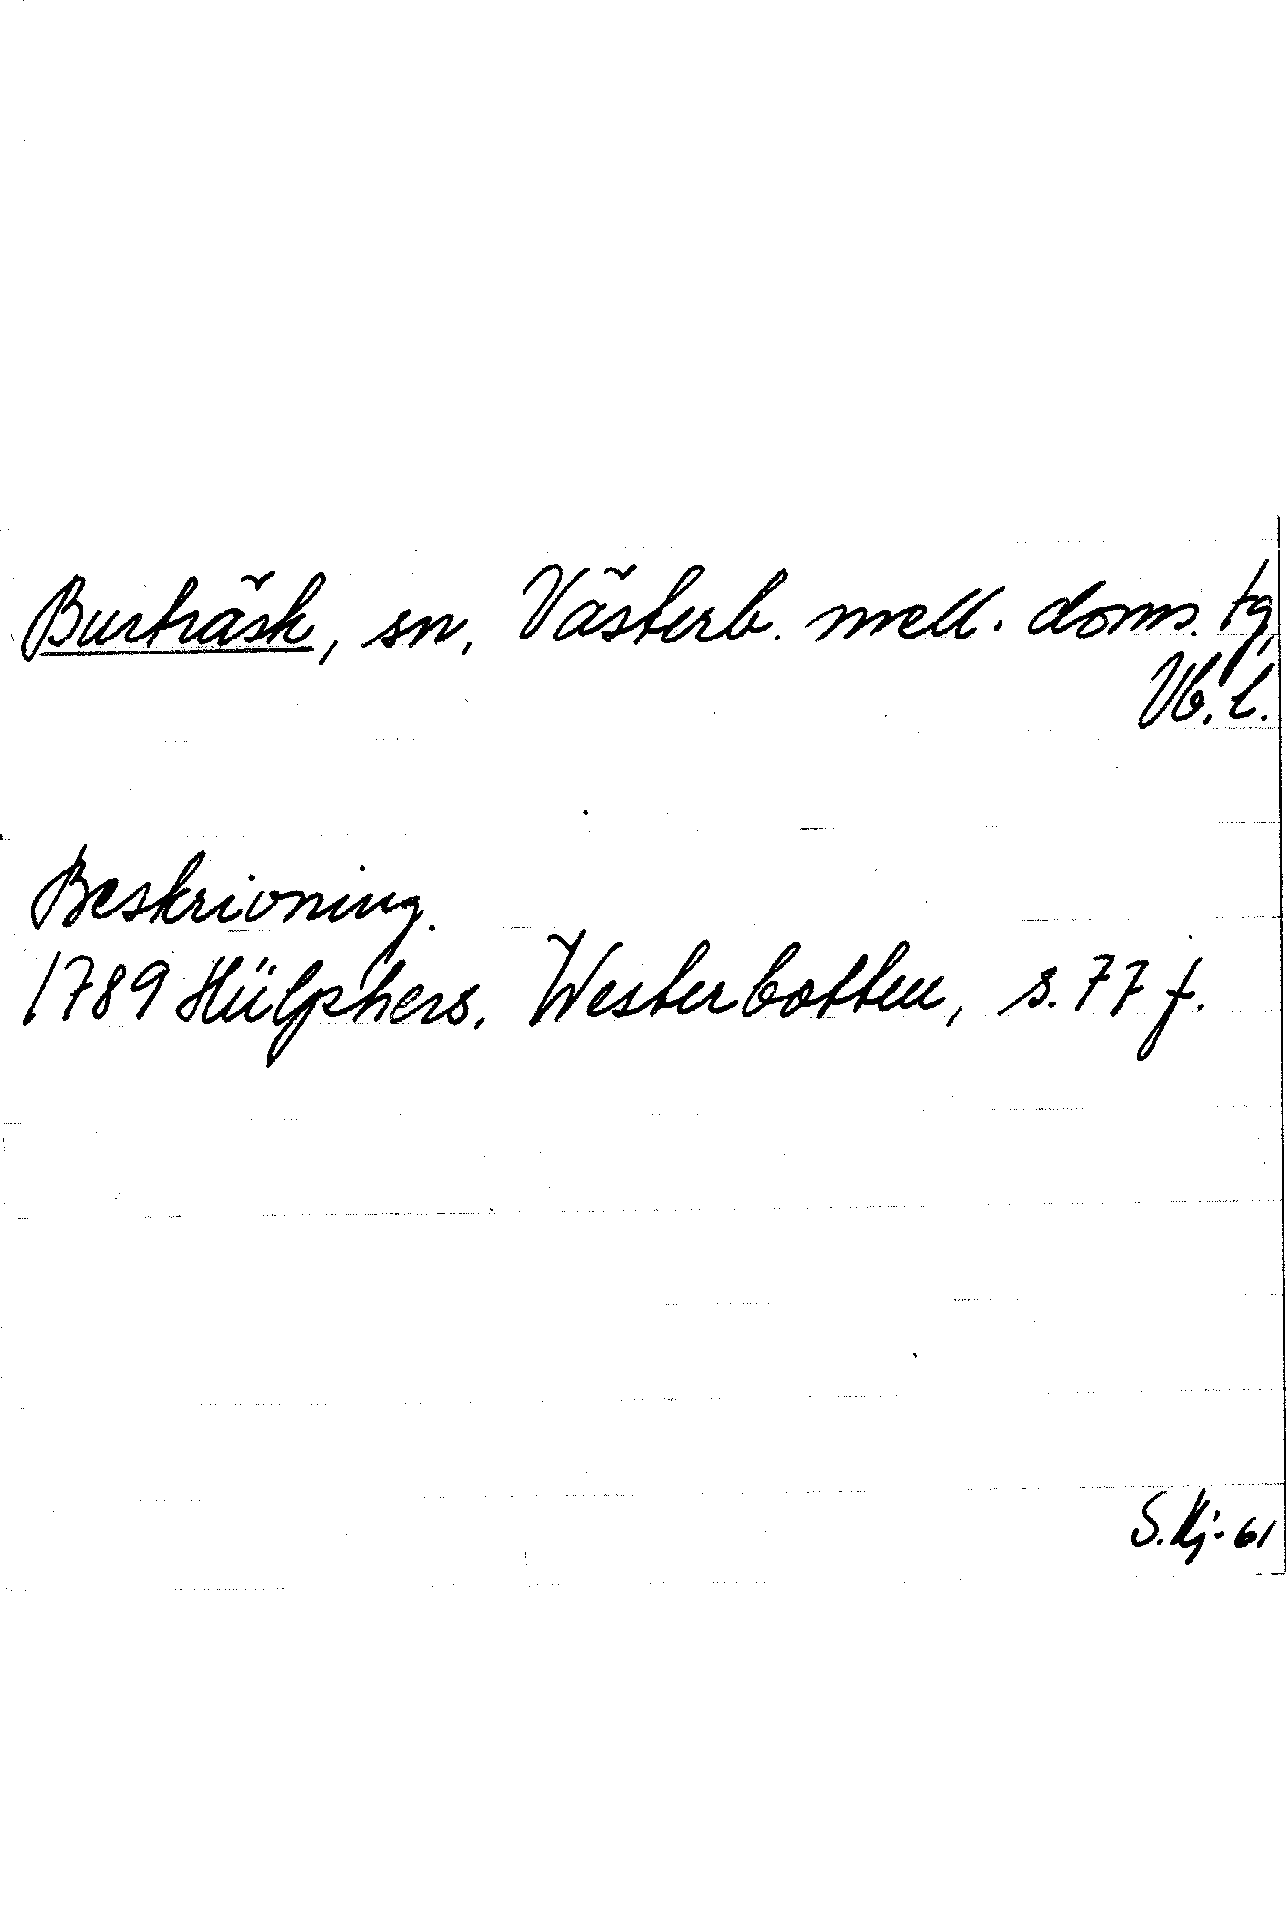 Burträsk, sn, Västerb. mell. doms. tg,
Vb. l.
Beskrivning.
1789 Hülphers, Westerbotten, s. 77 f.
S. Kj-61